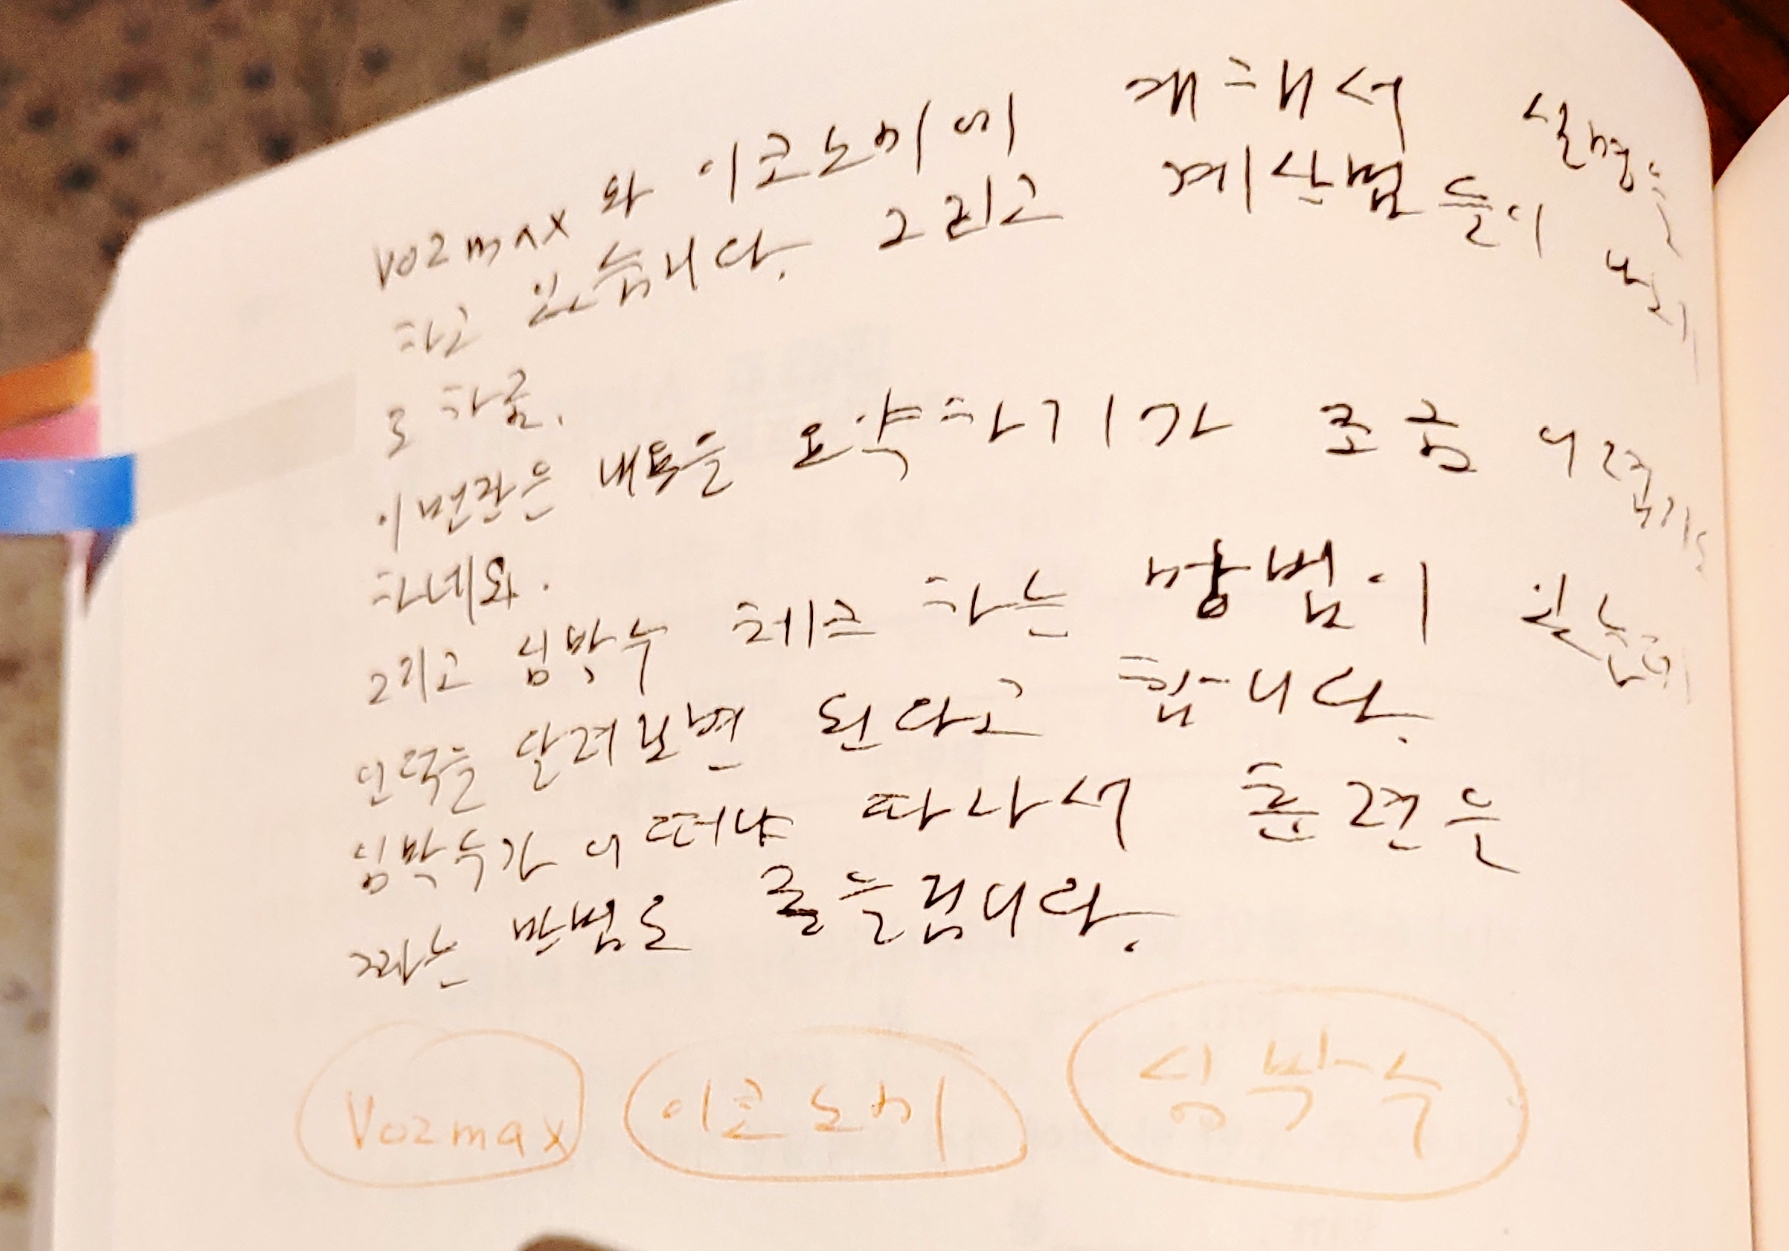 VO2max와 이코노미에 대해서 설명을
하고 있습니다. 그리고 계산법들이 나오기
도 하죠.
이번관은 내용을 요약하기가 조금 어렵기도
하네요.
그리고 심박수 체크 하는 방법이 있는데
언덕을 달려보면 된다고 합니다.
심박수가 어떠냐 따라서 훈련을
짜는 방법도 들립니다.
VO2max 이코노미 심박수